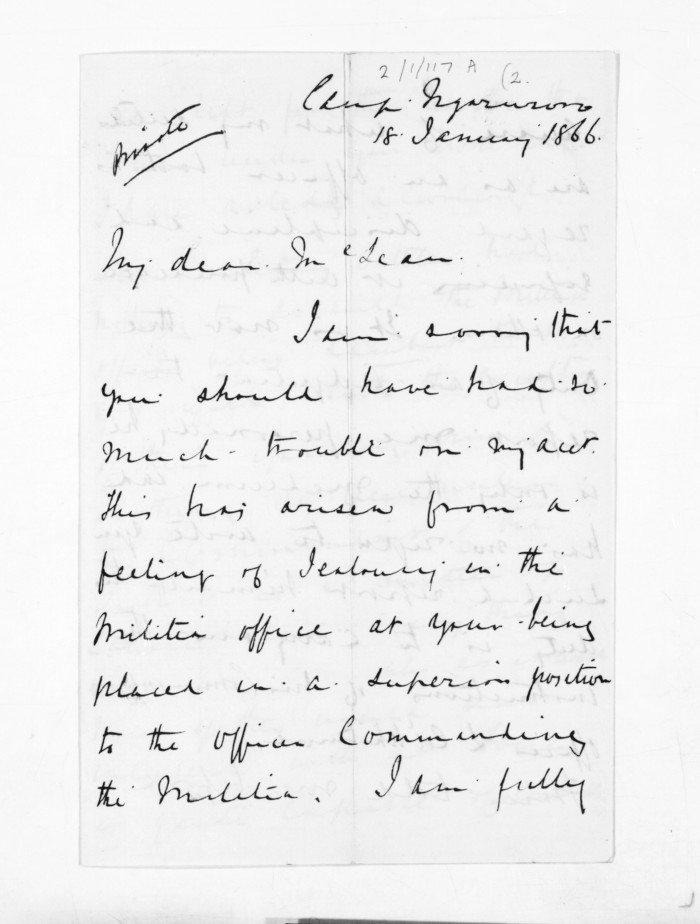 2/1/117 A (2.
Camp. Ngaruroro
18. January 1866.
Private
My dear. McLean.
I am sorry that
you should have had so.
much trouble on my acct.
This has arisen from a
feeling of Jealousy in the
Militia office at your being
placed in a superior position
to the officer Commanding
the Militia. I am fully